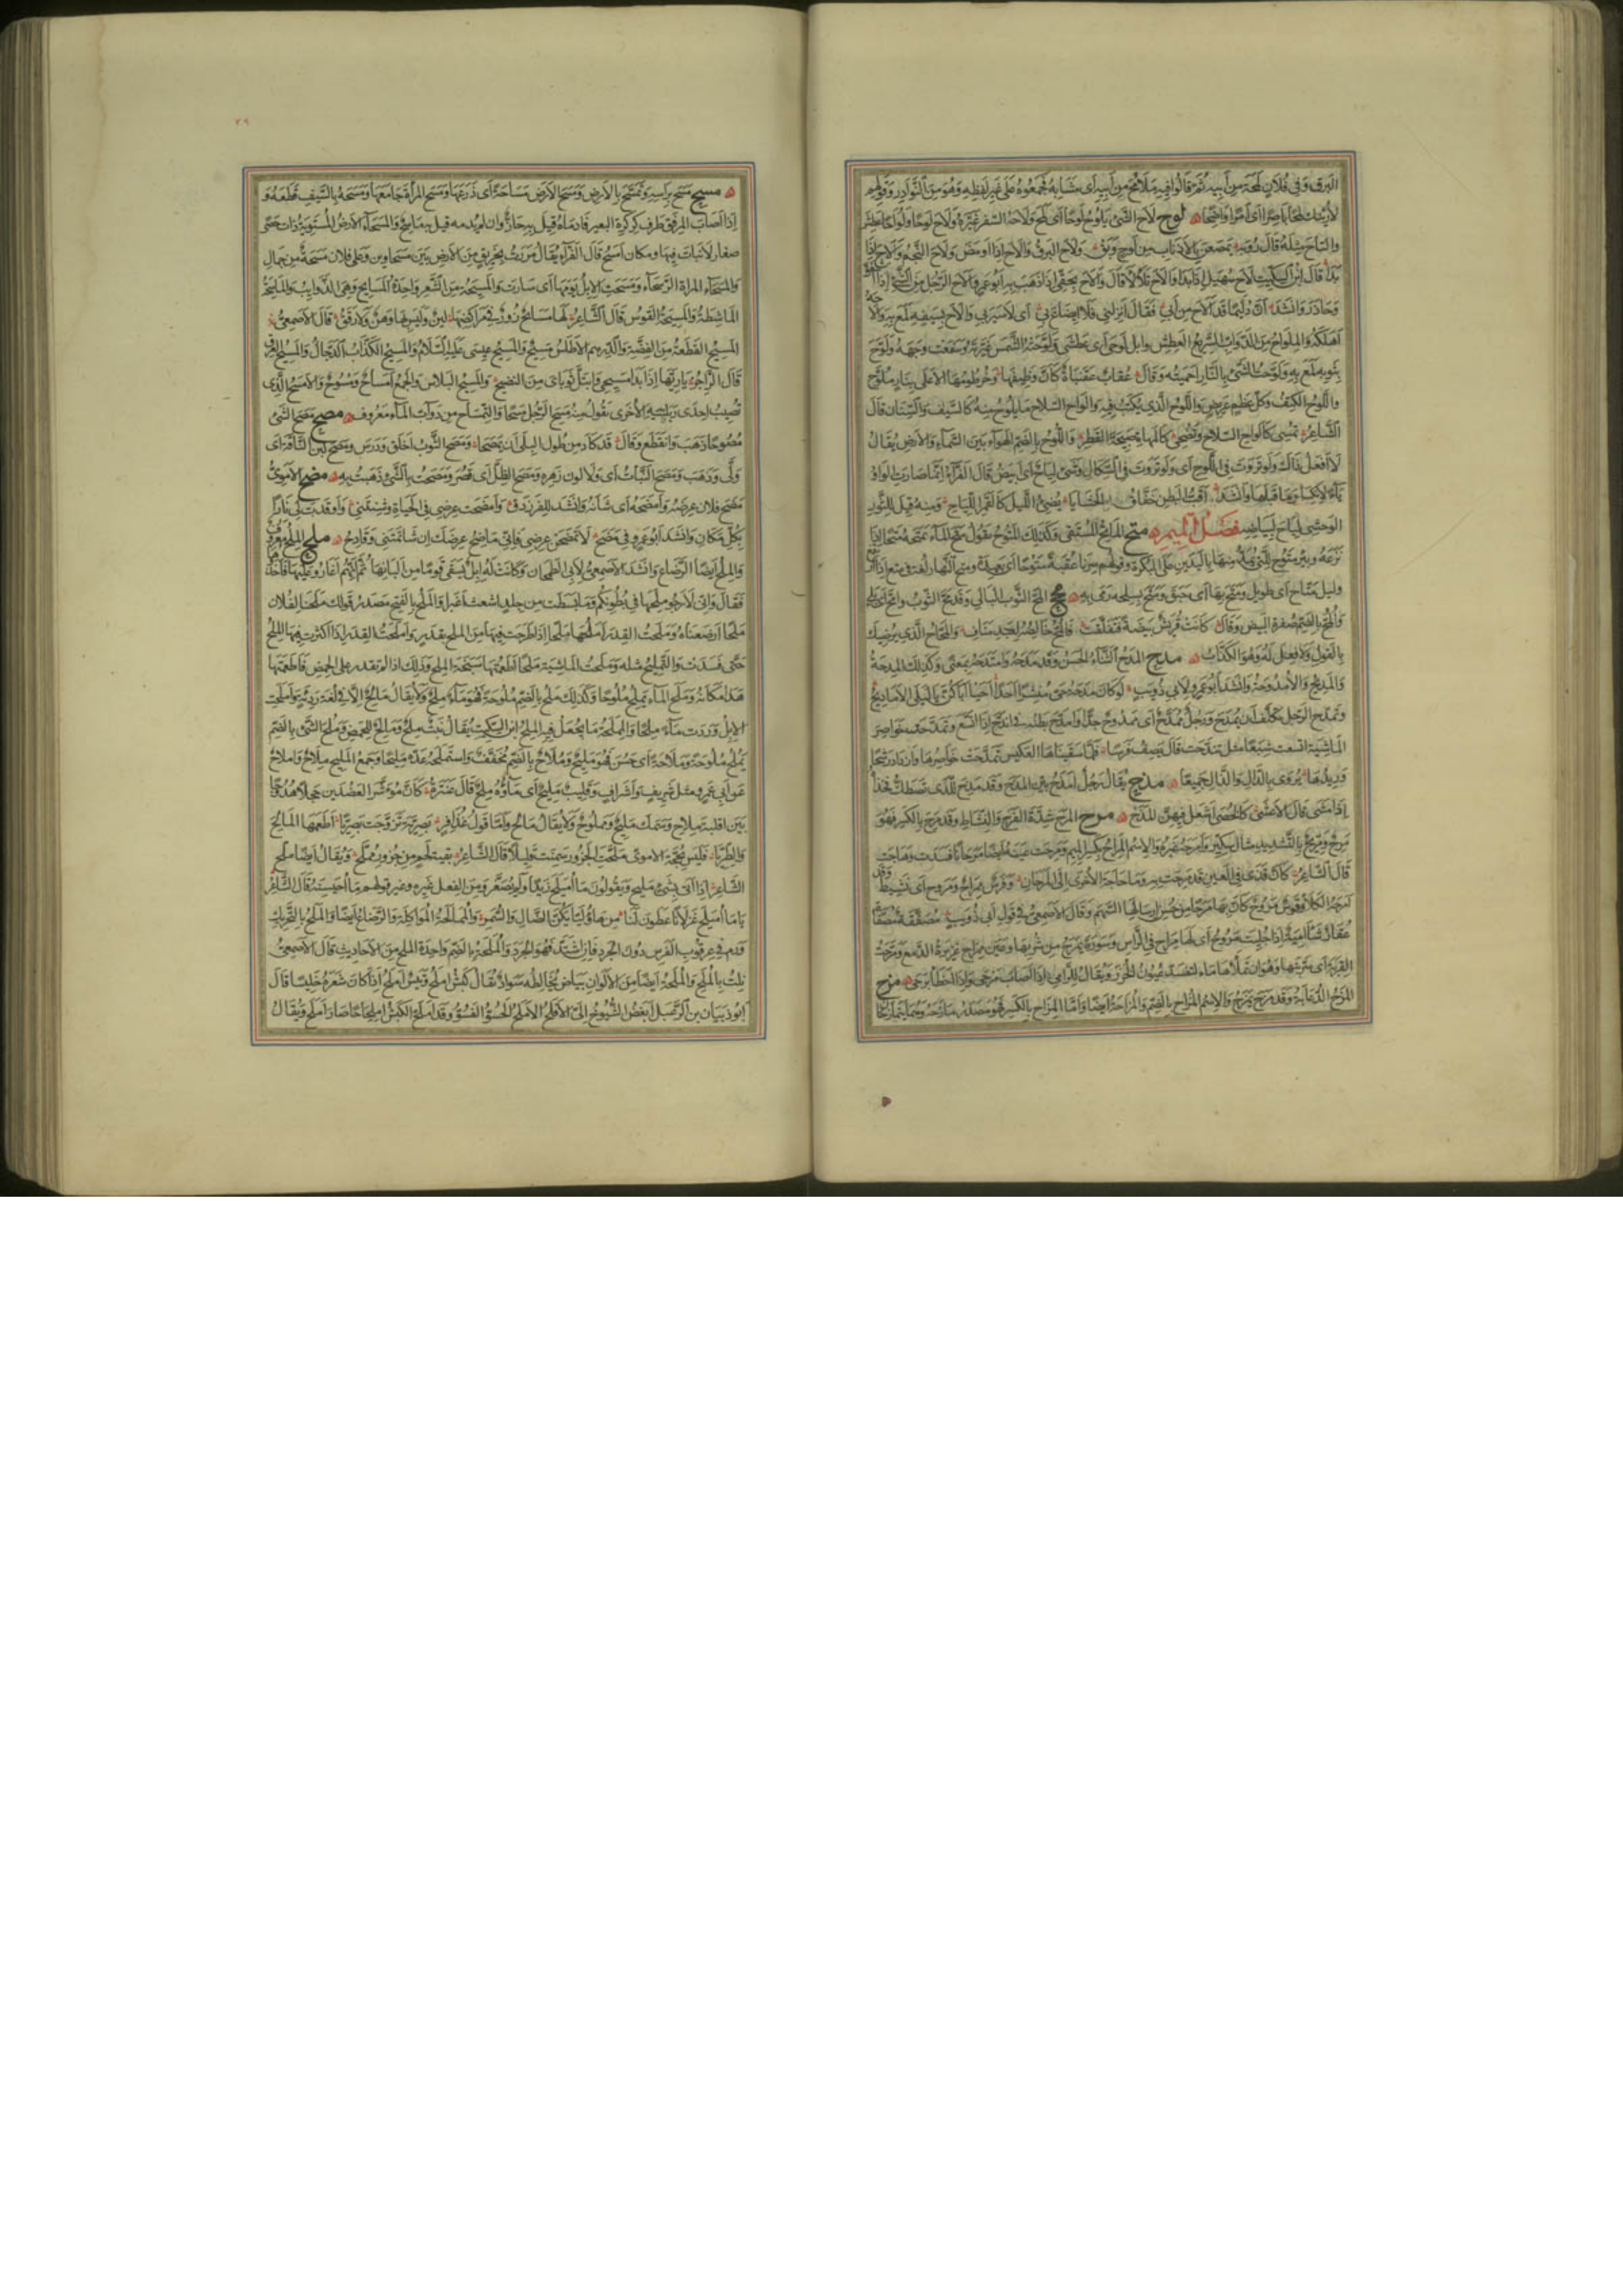 البرق وفى فلان لمحة من أبيه ثم قالوا فيه ملامح من أبيه أى مشابه فجمعوه على غير لفظه وهو من النوادر وقولهم
لأرينك لمحا باصرا أى أمرا واضحا لوح لاح الشىء يلوح لوحا أى لمح ولاحه السفر غيره ولاح لوحا ولواحا عطش
والتاح مثله قال رؤبة يمصعن بالأذناب من لوح وبق ولاح البرق وألاح إذا أومض ولاح النجم وألاح إذا
بدا قال ابن السكيت لاح سهيل إذا بدا وألاح تلألأ قال وألاح بحقى إذا ذهب به أبو عمرو ألاح الرجل من الشىء إذا أشفق
وحاذر وأنشد ان دليما قد ألاح من أبى فقال أنزلنى فلا إيضاع بى أى لا سير بى وألاح بسيفه لمع به وألاحه
أهلكه والملواح من الدواب السريع العطش وإبل لوحى أى عطشى ولوحته الشمس غيرته وسفعت وجهه ولوح
بثوبه لمع به ولوحت الشىء بالنار أحميته وقال عقاب عقنباة كأن وظيفها وخرطومها الأعلى بنار ملوح
واللوح الكتف وكل عظم عريض واللوح الذى يكتب فيه وألواح السلاح ما يلوح منه كالسيف والسنان قال
الشاعر تمسى كألواح السلاح وتضحى كالمهاة صبيحة القطر واللوح بالضم الهواء بين السماء والأرض يقال
لا أفعل ذاك ولو نزوت فى اللوح أى ولو نزوت فى السكاك وشىء لياح أى أبيض قال الفراء إنما صارت الواو
ياء لانكسار ما قبلها وأنشد أقب البطن خفاق الحشايا يضىء الليل كالقمر اللياح ومنه قيل للثور
الوحشى لياح لبياضه فصل الميم متح الماتح المستقى وكذلك المتوح تقول متح الماء يمتحه متحا إذا
نزعه وبئر متوح للتى يمد منها باليدين على البكرة وقولهم سرنا عقبة متوحا أى بعيدة ومتح النهار لغة فى متع إذا
وليل متاح أى طويل ومتح بها أى حبق ومتح بسلحه رمى به مح المح الثوب البالى وقد مح الثوب وأمح أى بلى
والمح بالضم صفرة البيض وقال كانت قريش بيضة فتفلقت فالمح خالصه لعبد مناف والمحاح الذى يرضيك
بالقول ولا فعل له وهو الكذاب مدح المدح الثناء الحسن وقد مدحه وامتدحه بمعنى وكذلك المدحة
والمديح والأمدوحة وأنشد أبو عمرو لأبى ذؤيب لو كان مدحة حى منشرا أحدا أحيا أباكن يا ليلى الأماديح
وتمدح الرجل تكلف أن يمدح ورجل ممدح أى ممدوح جدا وامدح بطنه لغة فى اندح إذا اتسع وتمدحت خواصر
الماشية اتسعت شبعا مثل تندحت قال يصف فرسا فلما سقيناها العكيس تمدحت خواصرها وازداد رشحا
وريدها يروى بالدال والذال جميعا مذح يقال رجل أمذح بين المذح وقد مذح للذى تصطك فخذاه
إذا مشى قال الأعشى كالخصى أشعل فيهن المذح مرح المرح شدة الفرح والنشاط وقد مرح بالكسر فهو
مرح ومريح بالتشديد مثال سكير وأمرحه غيره والاسم المراح بكسر الميم ومرحت عينه أيضا مرحانا فسدت وهاجت
قال الشاعر كأن قذى فى العين قد مرحت به وما حاجة الأخرى إلى المرحان وفرس ممراح ومروح أى نشيط وقد
أمرحه الكلأ وقوس مروح كأن بها مرحا من حسن إرسالها السهم وقال الأصمعى فى قول أبى ذؤيب مصفقة مصفاة
عقار شآمية إذا جليت مروح أى لها مراح فى الرأس وسورة يمرح من شربها وعين ممراح غزيرة الدمع ومرحت
القربة أى سربتها وهو أن تملأها ماء لتنسد عيون الخرز ويقال للرامى إذا أصاب مرحى وإذا أخطأ برحى مزح
المزح الدعابة وقد مزح يمزح والاسم المزاح بالضم والمزاحة أيضا وأما المزاح بالكسر فهو مصدر مازحه وهما يتمازحان
٢٩
مسح مسح برأسه وتمسح بالأرض ومسح الأرض مساحة أى ذرعها ومسح المرأة جامعها ومسحه بالسيف قطعه و
إذا أصاب المرفق طرف كركرة البعير فأدماه قيل به حاز وإن لم يدمه قيل به ماسح والمسحاء الأرض المستوية ذات حصى
صغار لا نبات فيها ومكان أمسح قال الفراء يقال مررت بخريق من الأرض بين مسحاوين وعلى فلان مسحة من جمال
والمسحاء المرأة الرسحاء ومسحت الإبل يومها أى سارت والمسيحة من الشعر واحدة المسائح وهى الذوائب والماسحة
الماشطة والمسيحة القوس قال الشاعر لها مسائح زور فى مراكضها لين وليس بها وهن ولا رقق قال الأصمعى
المسيح القطعة من الفضة والدرهم الأطلس مسيح والمسيح عيسى عليه السلام والمسيح الكذاب الدجال والمسيح العرق
قال الراجز يا ريها إذا بدا مسيحى وابتل ثوباى من النضيح والمسيح البلاس والجمع أمساح ومسوح والأمسح الذى
تصيب إحدى ربلتيه الأخرى تقول منه مسح الرجل مسحا والتمساح من دواب الماء معروف مصح مصح الشىء
مصوحا ذهب وانقطع وقال قد كاد من طول البلى أن يمصحا ومصح الثوب أخلق ودرس ومصح لبن الناقة أى
ولى وذهب ومصح النبات أى ولا لون زهره ومصح الظل أى قصر ومصحت بالشىء ذهبت به مضح الأموى
مضح فلان عرضه وأمضحه أى شانه وأنشد للفرزدق وأمضحت عرضى فى الحياة وشنتنى وأوقدت لى نارا
بكل مكان وأنشد أبو عمرو فى مضح لا تمضحن عرضى فإنى ماضح عرضك إن شاتمتنى وقادح ملح الملح معروف
والملح أيضا الرضاع وأنشد الأصمعى لأبى الطمحان وكانت له إبل يسقى قوما من ألبانها ثم إنهم أغاروا عليها فأخذوها
فقال وإنى لأرجو ملحها فى بطونكم وما بسطت من جلد أشعث أغبرا والملح بالفتح مصدر قولك ملحنا لفلان
ملحا أرضعناه وملحت القدر أملحها ملحا إذا طرحت فيها من الملح بقدر وأملحت القدر إذا أكثرت فيها الملح
حتى فسدت والتمليح مثله وملحت الماشية ملحا أطعمتها سبخة الملح وذلك إذا لم تقدر على الحمض فأطعمتها
هذا مكانه وملح الماء يملح ملوحا وكذلك ملح بالضم ملوحة فهو ماء ملح ولا يقال مالح إلا فى لغة ردية وأملحت
الإبل وردت ماء ملحا والملاحة ما يجعل فيه الملح ابن السكيت يقال نبت ملح ومالح للحمض وملح الشىء بالضم
يملح ملوحة وملاحة أى حسن فهو مليح وملاح بالضم مخفف واستملحه عده مليحا وجمع المليح ملاح وأملاح
عن أبى عمرو مثل شريف وأشراف وقليب مليح أى ماؤه ملح قال عنترة كأن مؤشر العضدين حجلا هدوجا
بين أقلبة ملاح وسمك مليح ومملوح ولا يقال مالح وأما قول عذافر بصرية تزوجت بصريا أطعمها المالح
والطريا فليس بحجة الأموى ملحت الجزور سمنت قليلا قال الشاعر بقية لحم من جزور مملح ويقال أيضا أملح
الشاعر إذا أتى بشىء مليح ويقولون ما أميلح زيدا ولم يصغر من الفعل غيره وغير قولهم ما أحيسنه قال الشاعر
ياما أميلح غزلانا عطون لنا من هاؤليائكن الضال والسمر والممالحة المواكلة والرضاع أيضا والملح بالتحريك
ورم فى عرقوب الفرس دون الجرد فإن اشتد فهو الجرد والملحة بالضم واحدة الملح من الأحاديث قال الأصمعى
نلت بالملح والملحة أيضا من الألوان بياض يخالطه سواد يقال كبش أملح وتيس أملح إذا كان شعره خليسا قال
أبو ذبيان بن الرعبل أبغض الشيوخ إلى الأقلح الأملح الحسو الفسو وقد املح الكبش املحاحا صار أملح ويقال